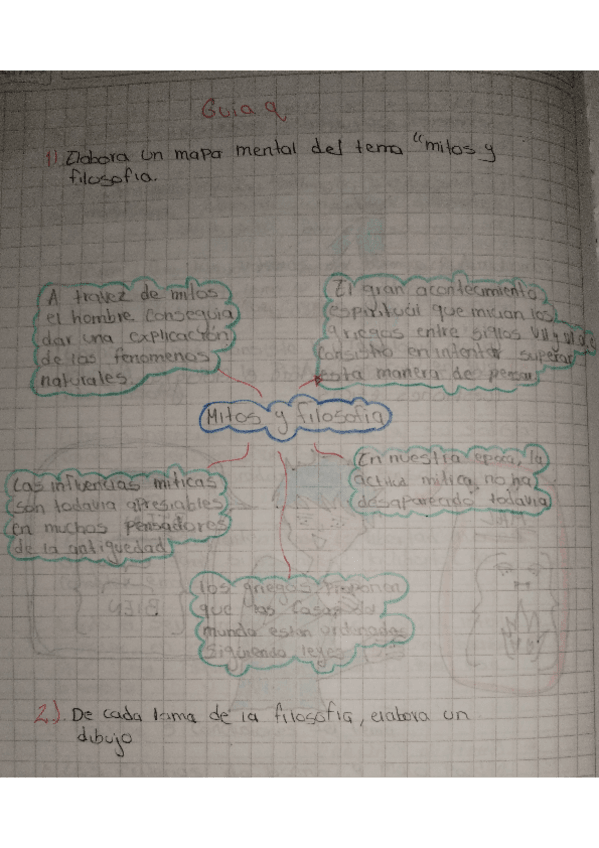 Guia 9
1) Elabora un mapa mental del tema "mitos y
filosofia.
A travez de mitos
el hombre conseguia
dar una explicación
de los fenomenos
naturales
El gran acontecimiento
espiritual que the los
griegos entre siglos
consistio en intentar superar
esta manera de pensar
Mitos y filosofia
Las influencias miticas
son todavia apresiables
en muchos pensadores
de la antiguedad
En nuestra epoca, la
actitud mitica, no ha
desaparecido todavia
los griegos proponen
que las cosas del
mundo estan ordenadas
siguiendo leyes
2.) De cada rama de la filosofia, elabora un
dibujo